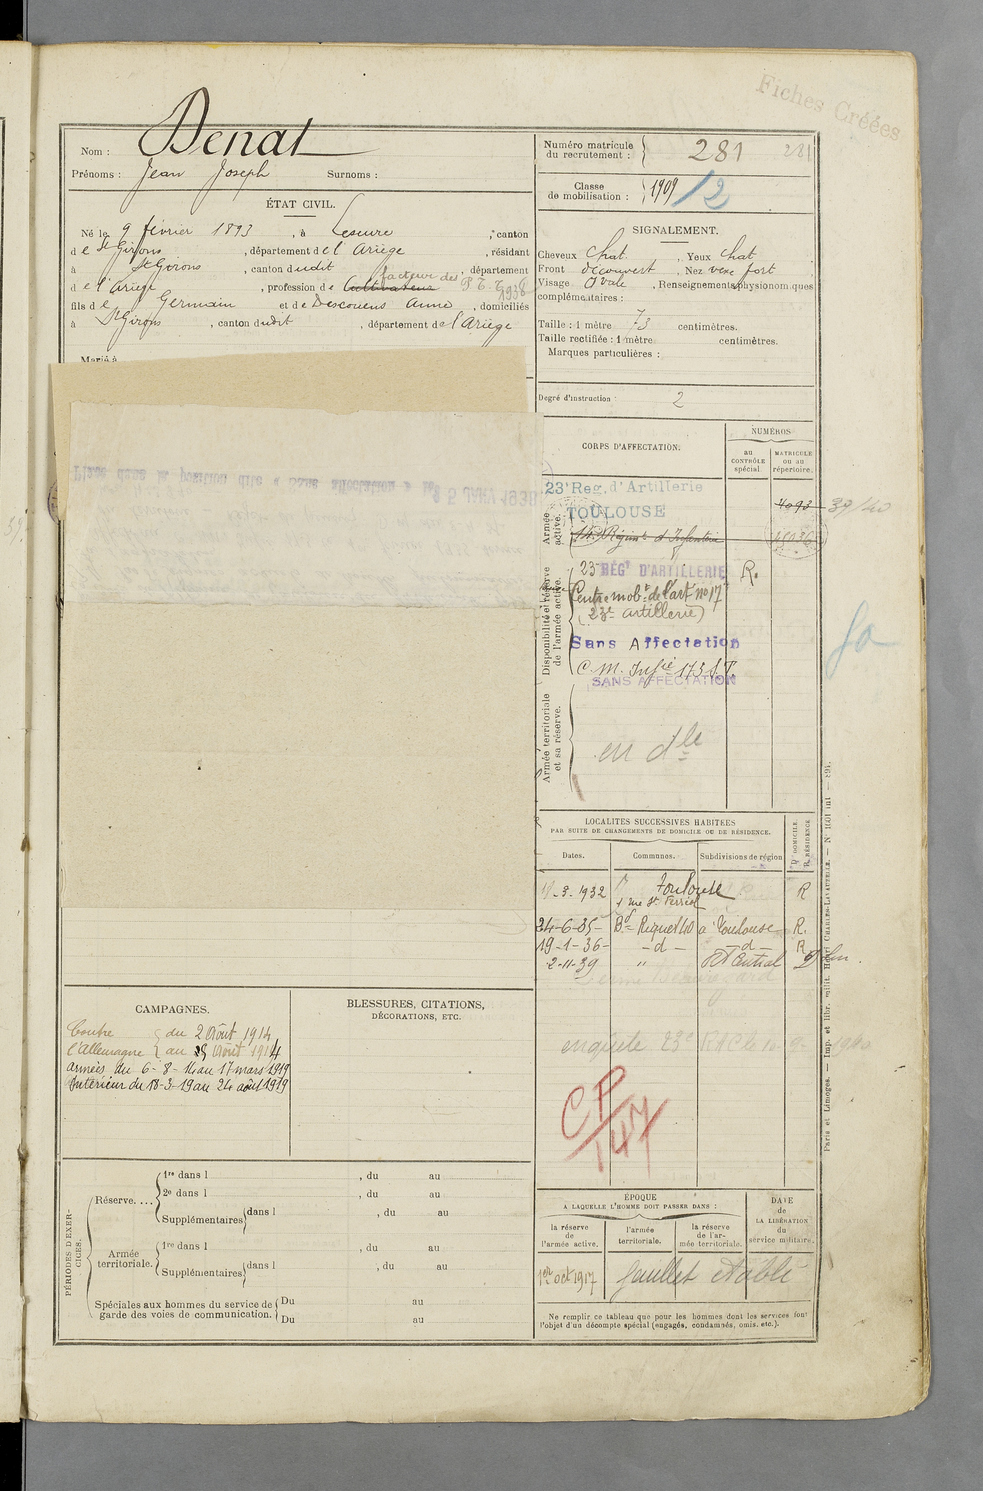 Fiches Créées
Nom : Denat
Prénoms : Jean Joseph Surnoms :
Numéro matricule du recrutement : 281 281
Classe de mobilisation : 1909/2
ÉTAT CIVIL.
Né le 9 février 1893, à Lescure, canton
de St Girons, département de l'Ariège, résidant
à St Girons, canton dudit, département
de l'Ariège, profession de Cultivateur facteur des P.T.T. 1938
fils de Germain et de Descouens Anne, domiciliés
à St Girons, canton dudit, département de l'Ariège
Marié à
SIGNALEMENT.
Cheveux chat. , Yeux chat
Front découvert , Nez vexe fort
Visage Ovale , Renseignements physionomiques
complémentaires :
Taille : 1 mètre 73 centimètres.
Taille rectifiée : 1 mètre centimètres.
Marques particulières :
Degré d'instruction : 2
CORPS D'AFFECTATION.
NUMÉROS
au CONTRÔLE spécial.
MATRICULE ou au répertoire.
Placé dans la position dite « Sans affectation » le 5 JANV 1938
Armée active.
23e Reg. d'Artillerie
TOULOUSE
14e Régiment d'Infanterie
4093 39/40
Disponibilité et réserve de l'armée active.
23e RÉGt D'ARTILLERIE R.
Centre mobre de l'art no 17
(23e artillerie)
Sans Affectation
C. M. Infie 173 S.P.
SANS AFFECTATION
Armée territoriale et sa réserve.
en dle
LOCALITÉS SUCCESSIVES HABITÉES
PAR SUITE DE CHANGEMENTS DE DOMICILE OU DE RÉSIDENCE.
Dates. Communes. Subdivisions de région D. DOMICILE. R. RÉSIDENCE
11-3-1932 Toulouse R
rue St Ferréol
24-6-35- Bd Riquet 40 à Toulouse R.
19-1-36- -d- -d- R
2-11-39 " PTT Central
enquête 23e RAC le 10-9-1940
CP/147
CAMPAGNES.
Contre l'Allemagne { du 2 Août 1914
au 5 Août 1914
armées du 6-8-14 au 17 mars 1919
Intérieur du 18-3-19 au 24 août 1919
BLESSURES, CITATIONS,
DÉCORATIONS, ETC.
PÉRIODES D'EXERCICES.
Réserve....
1re dans l , du au
2e dans l , du au
Supplémentaires dans l , du au
Armée territoriale.
1re dans l , du au
Supplémentaires dans l , du au
Spéciales aux hommes du service de garde des voies de communication.
Du au
Du au
ÉPOQUE
A LAQUELLE L'HOMME DOIT PASSER DANS :
la réserve de l'armée active.
l'armée territoriale.
la réserve de l'armée territoriale.
DATE de LA LIBÉRATION du service militaire.
1er oct 1917 feuillet établi
Ne remplir ce tableau que pour les hommes dont les services font
l'objet d'un décompte spécial (engagés, condamnés, omis, etc.).
Paris et Limoges. — Imp. et libr. milit. Henri CHARLES-LAVAUZELLE. — No 1601